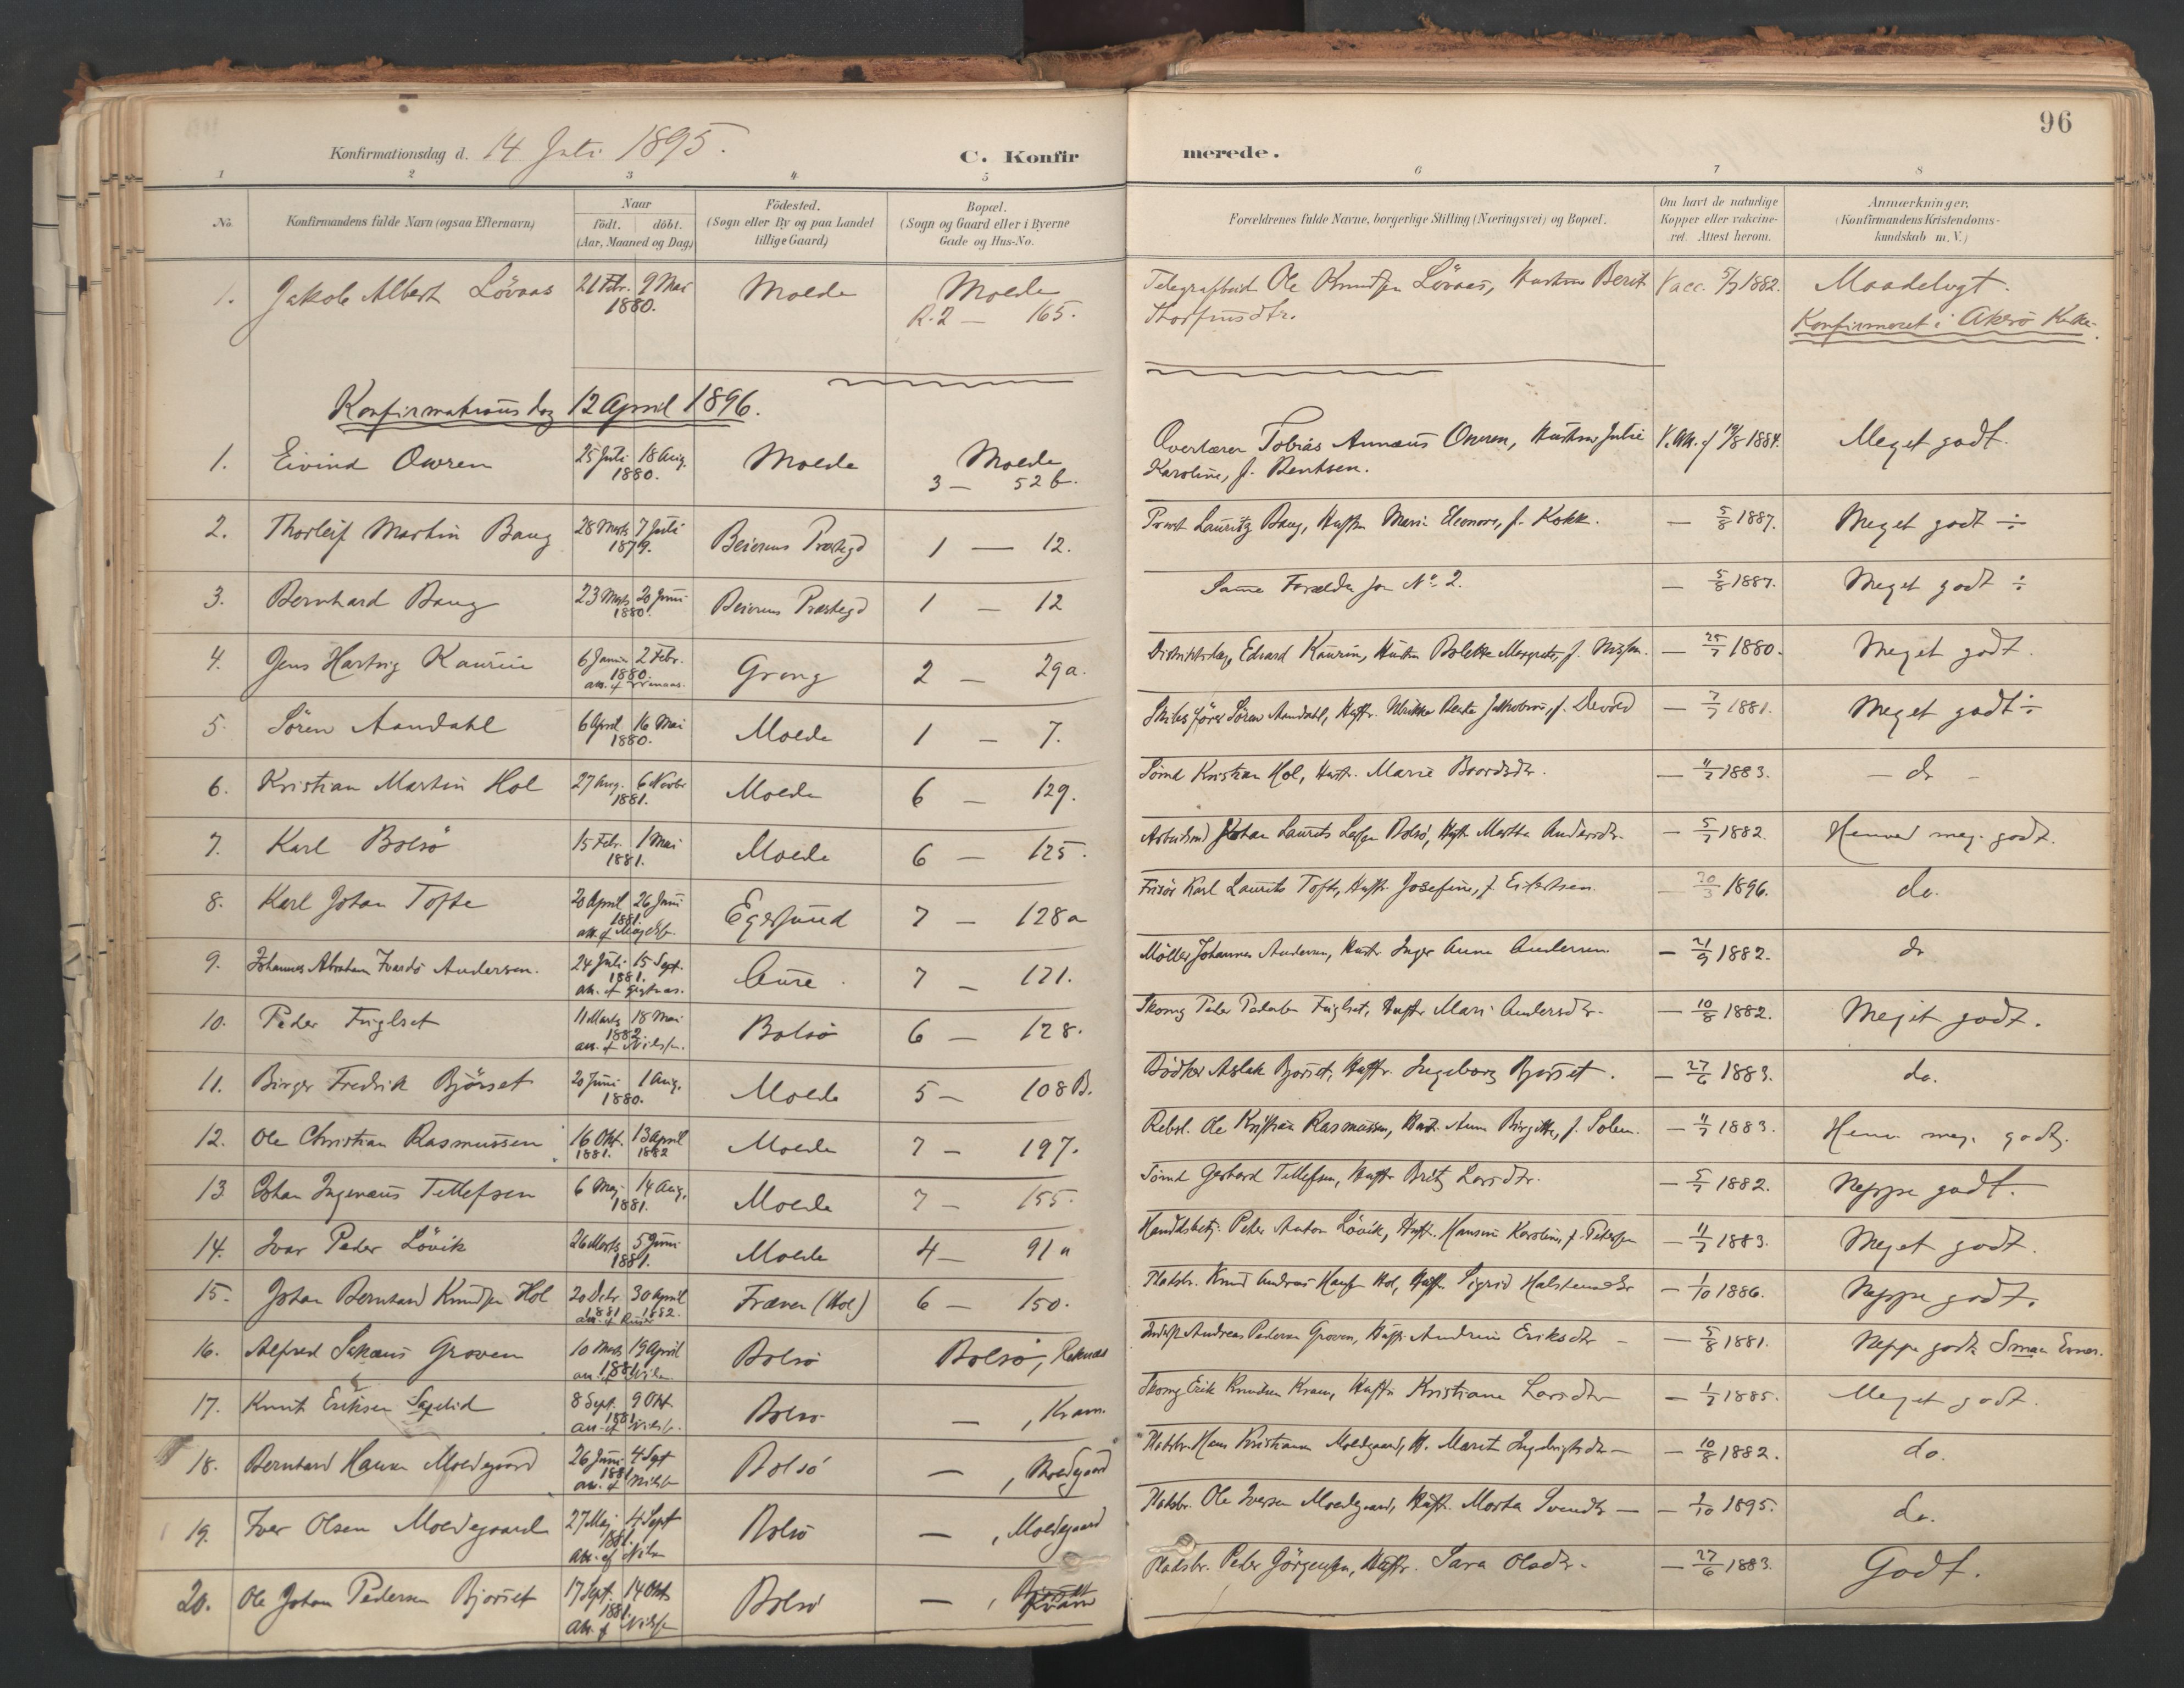 96
Konfirmationsdag d. 14 Juli 1895.
C. Konfirmerede.
1 2 3 4 5 6 7 8
No.
Konfirmandens fulde Navn (ogsaa Efternavn)
Naar
födt. döbt.
(Aar, Maaned og Dag)
Födested.
(Sogn eller By og paa Landet
tillige Gaard)
Bopæl.
(Sogn og Gaard eller i Byerne
Gade og Hus-No.
Forældrenes fulde Navne, borgerlige Stilling (Næringsvei) og Bopæl.
Om havt de naturlige
Kopper eller vakcine-
ret. Attest herom.
Anmærkninger.
(Konfirmandens Kristendoms-
kundskab m. V.)
1. Jakob Albert Lövaas 21 Febr. 9 Mai 1880. Molde Molde R. 2 — 165. Telegrafbud Ole Knudsen Lövaas, Hustru Berit Thorfinsdtr. Vacc. 5/7 1882. Maadeligt.
Konfirmeret i Akerö Kirke.
Konfirmationsdag 12 April 1896.
1. Eivind Owren 25 Juli 18 Aug. 1880. Molde Molde 3 — 52 b. Overlærer Tobias Annæus Owren, Hustru Julie Karoline, f. Berntsen. 1884. Meget godt.
2. Thorleif Martin Baug 28 Marts 7 Juli 1879. Beierens Præstegd 1 — 12. Provst Lauritz Baug, Hustru Marie Eleonore, f. Kokk. — 5/8 1887. Meget godt ÷
3. Bernhard Baug 23 Marts 20 Juni 1880. Beierens Præstegd 1 — 12 Samme Forældre som No. 2. — 5/8 1887. Meget godt ÷
4. Jens Hartvig Kaurin 6 Januar 2 Febr. 1880. Grong 2 — 29a. Distriktslæge Edvard Kaurin, Hustru Bolette Margrete, f. Nissen. — 25/7 1880. Meget godt.
5. Sören Aandahl 6 April 16 Mai 1880. Molde 1 — 7. Skibsförer Sören Aandahl, Hustr. Ulrikke Beate Jakobine, f. Devold — 7/7 1881. Meget godt ÷
6. Kristian Martin Hol 27 Aug. 6 Novbr 1881. Molde 6 — 129. Sömd Kristian Hol, Hustr. Marie Baardsdtr. — 11/7 1883. — do —
7. Karl Bolsö 15 Febr. 1 Mai 1881. Molde 6 — 125. Arbeidsmd Johan Laurits Larsen Bolsö, Hustr. Martha Andersdtr. — 5/7 1882. Henved meg. godt.
8. Karl Johan Tofte 20 April 26 Juni 1881. Egersund 7 — 128a Frisör Karl Laurits Tofte, Hustr. Josefine, f. — 20/3 1896. do.
9. Johannes Abraham Andersen. 24 Juli 15 Sept. 1881. Aure 7 — 121. Möller Johannes Andersen, Hustr. Inger Anne Andersen — 21/9 1882. do
10. Peder Fuglset 11 Marts 18 Mai 1882. Bolsö 6 — 128. Skomg Peder Pedersen Fuglset, Hustr Mari Andersdtr. — 10/8 1882. Meget godt.
11. Birger Fredrik Björset 20 Juni 1 Aug. 1880. Molde 5 — 108 B. Bödker Aslak Björset, Hustr. Ingeborg Björset. — 27/6 1883. do.
12. Ole Christian Rasmussen 16 Okt. 1881. 13 April 1882 Molde 7 — 197. Rebsl. Ole Kristian Rasmussen, Hust. Anne Birgitte, f. Solem. — 11/7 1883. Henv. meg. godt.
13 Johan Ingemaus Tellefsen 6 Maj 14 Aug. 1881. Molde 7 — 155. Sömd Gerhard Tellefsen, Hustr Larsdtr. — 5/7 1882. Neppe godt.
14. Ivar Peder Lövik 26 Marts 5 Juni 1881. Molde 4 — 91 a Handelsbetj. Peder Anton Lövik, Hustr. Hansine Karoline, f. Petersen — 11/7 1883. Meget godt.
15. Johan Bernhard Knudsen Hol 20 Debr. 1881 30 April 1882. Fræner (Hol) 6 — 150. Pladsbr. Knud Andreas Hansen Hol, Hustr. Sigrid Halstensdtr — 1/10 1886. Neppe godt.
16. Alfred Groven 10 Marts 19 April 1881 Bolsö Bolsö, Reknæs Andreas Pedersen Groven, Hustr. Andrine Eriksdtr — 5/8 1881. Neppe godt Smaa Evner.
17. Knut Eriksen 8 Sept. 9 Okt. 1881 Bolsö —, Kvam. Skomg Erik Knudsen Kvam, Hustr Kristiane Larsdtr — 1/7 1885. Meget godt.
18. Bernhard Hansen Moldegaard 26 Juni 4 Sept 1881 Bolsö —, Moldegaard Pladsbr. Hans Kristiansen Moldegaard, H. Marit Ingebrigtsdtr — — 10/8 1882. do.
19. Iver Olsen Moldegaard 27 Maj 4 Sept 1881. Bolsö —, Moldegaard Pladsbr. Ole Iversen Moldegaard, Hustr. Marta Svendtr — 1895. do.
20. Ole Johan Pedersen Björset 17 Sept. 14 Okt 1881. Bolsö —, Björset Pladsbr. Peder Jörgensen, Hustr. Sara Olsdtr. — 27/6 1883. Godt.